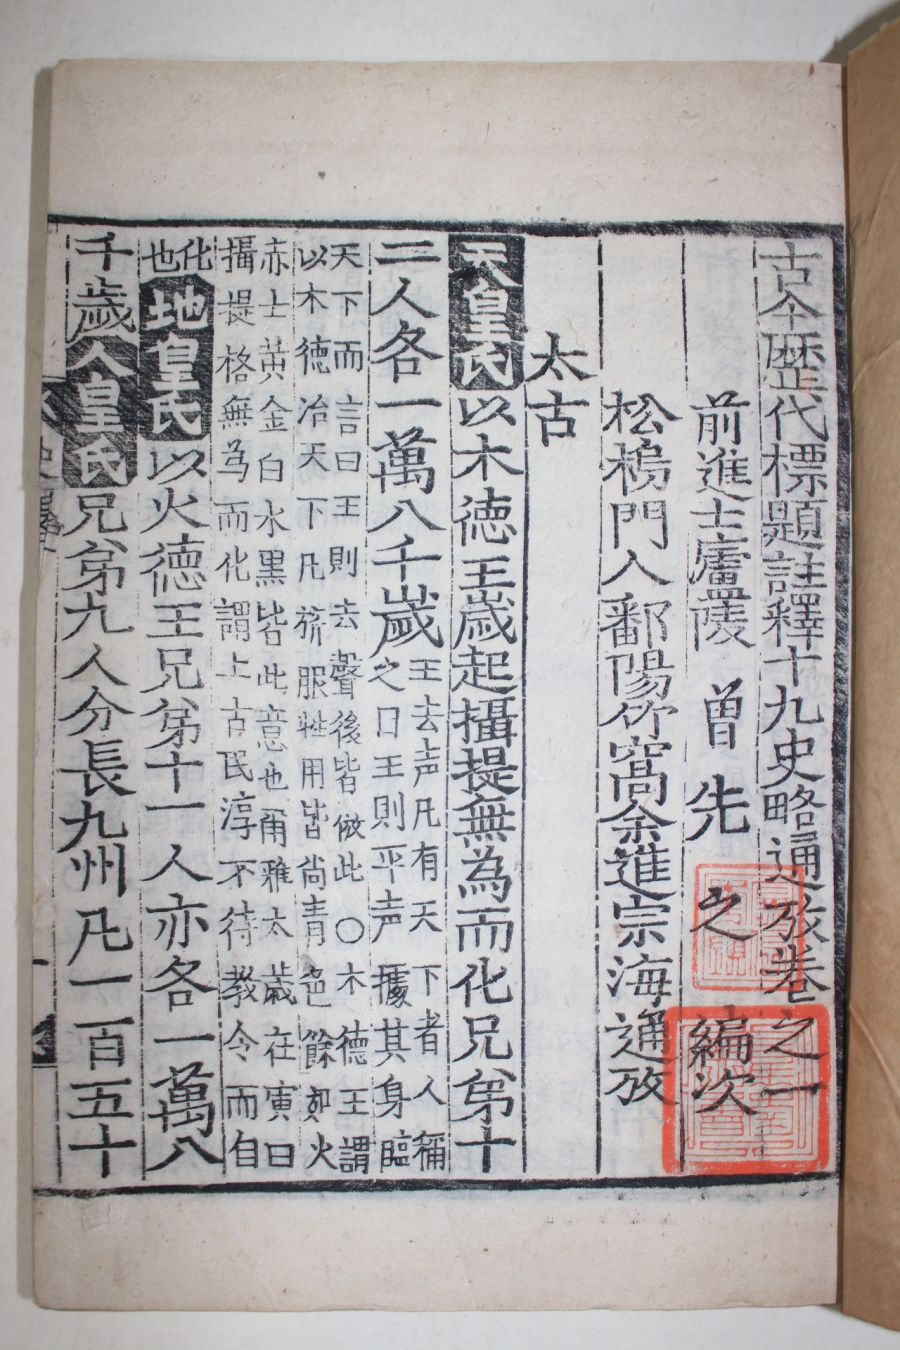 古今歴代標題註釋十九史略通攷卷之一
前進士廬陵 曾先之 編次
松槝門人鄱陽竹窩余進宗海通攷
太古
天皇氏以木徳王歳起攝提無為而化兄弟十
二人各一萬八千歲
王去声凡有天下者人稱
之曰王則平声據其身臨
天下而言曰王則去聲後皆倣此〇木徳王謂
以木徳治天下凡旂服牲用皆尚青色餘如火
赤土黃金白水黒皆此意也爾雅太歲在寅曰
攝提格無為而化謂上古民淳不待教令而自
化
也
地皇氏以火徳王兄弟十一人亦各一萬八
千歲人皇氏兄弟九人分長九州凡一百五十